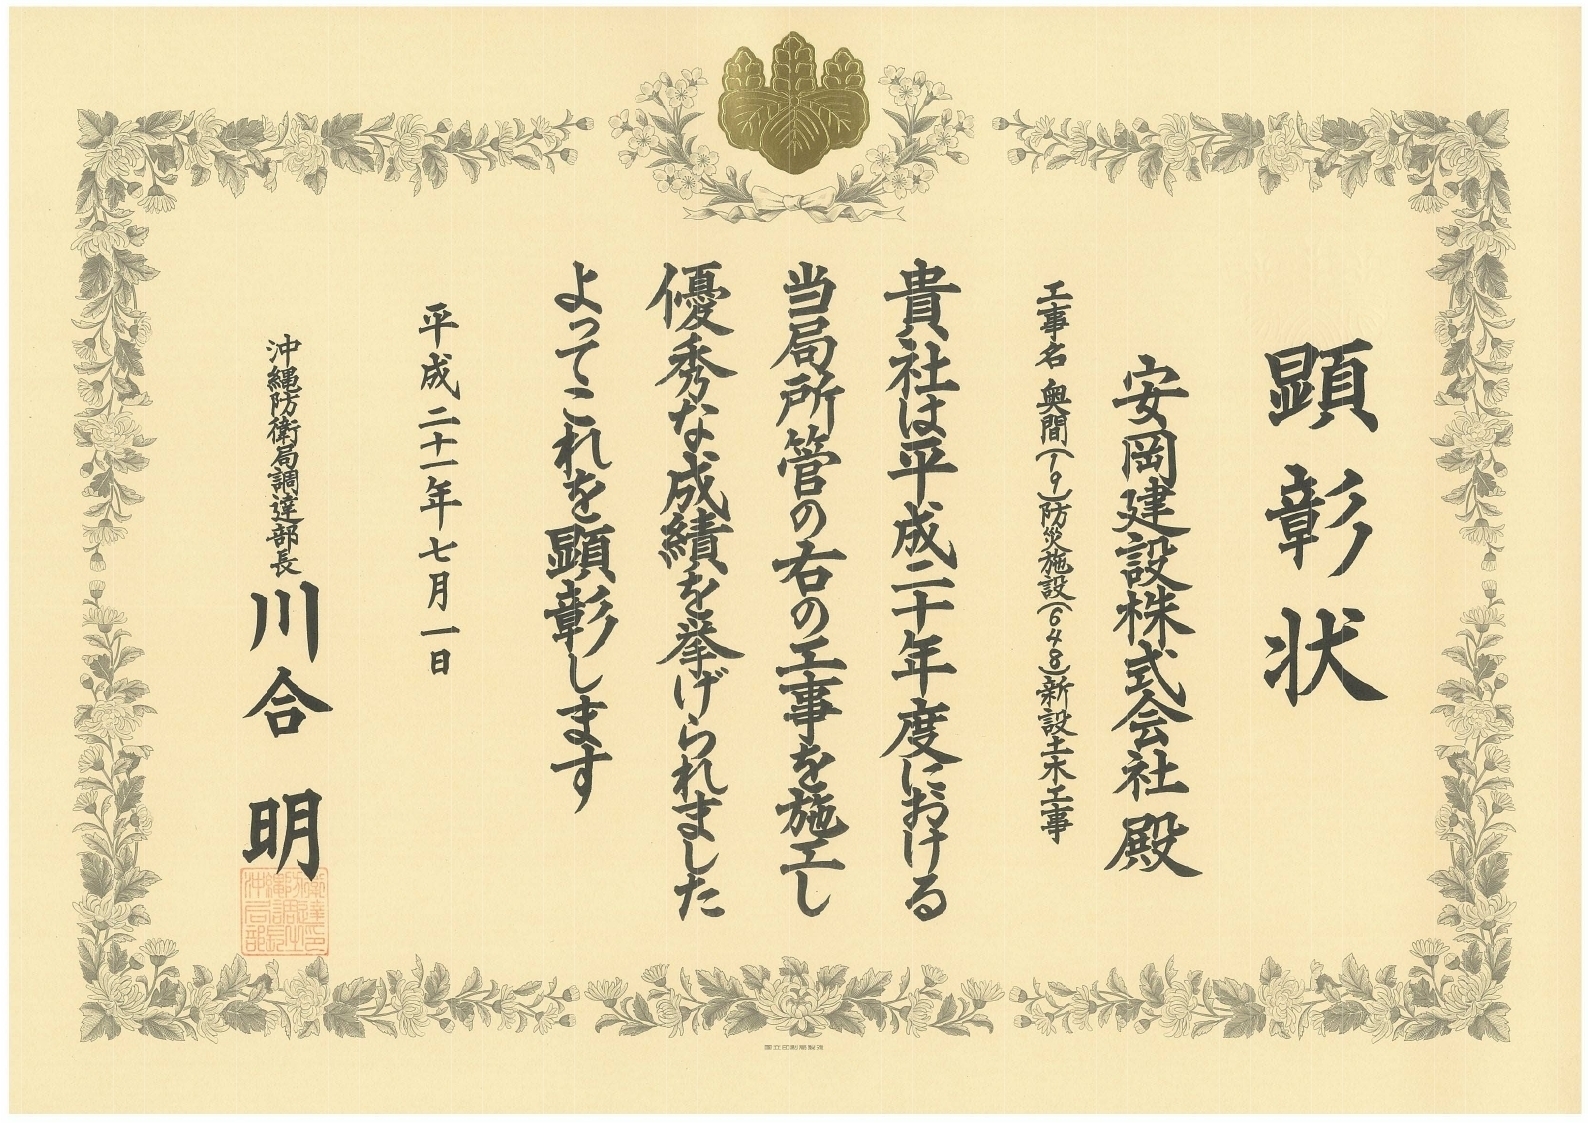 顕彰状
安岡建設株式会社 殿
工事名 奥間(19)防災施設(648)新設土木工事
貴社は平成二十年度における
当局所管の右の工事を施工し
優秀な成績を挙げられました
よってこれを顕彰します
平成二十一年七月一日
沖縄防衛局調達部長 川合 明